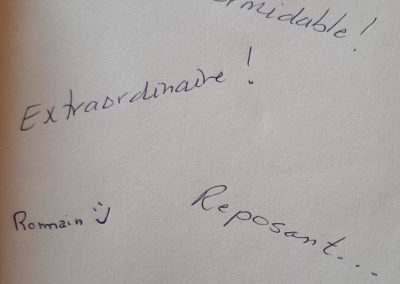 ormidable!
Extraordinaire!
Romain
Reposant...